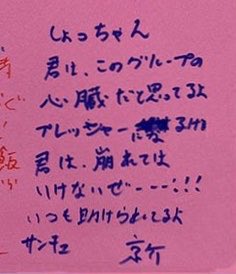 しょっちゃん
君は、このグループの
心臓だと思ってるよ
プレッシャーになるけど
君は、崩れては
いけないぜーー!!!
いつも助けられてるよ
サンキュ 京介
飯